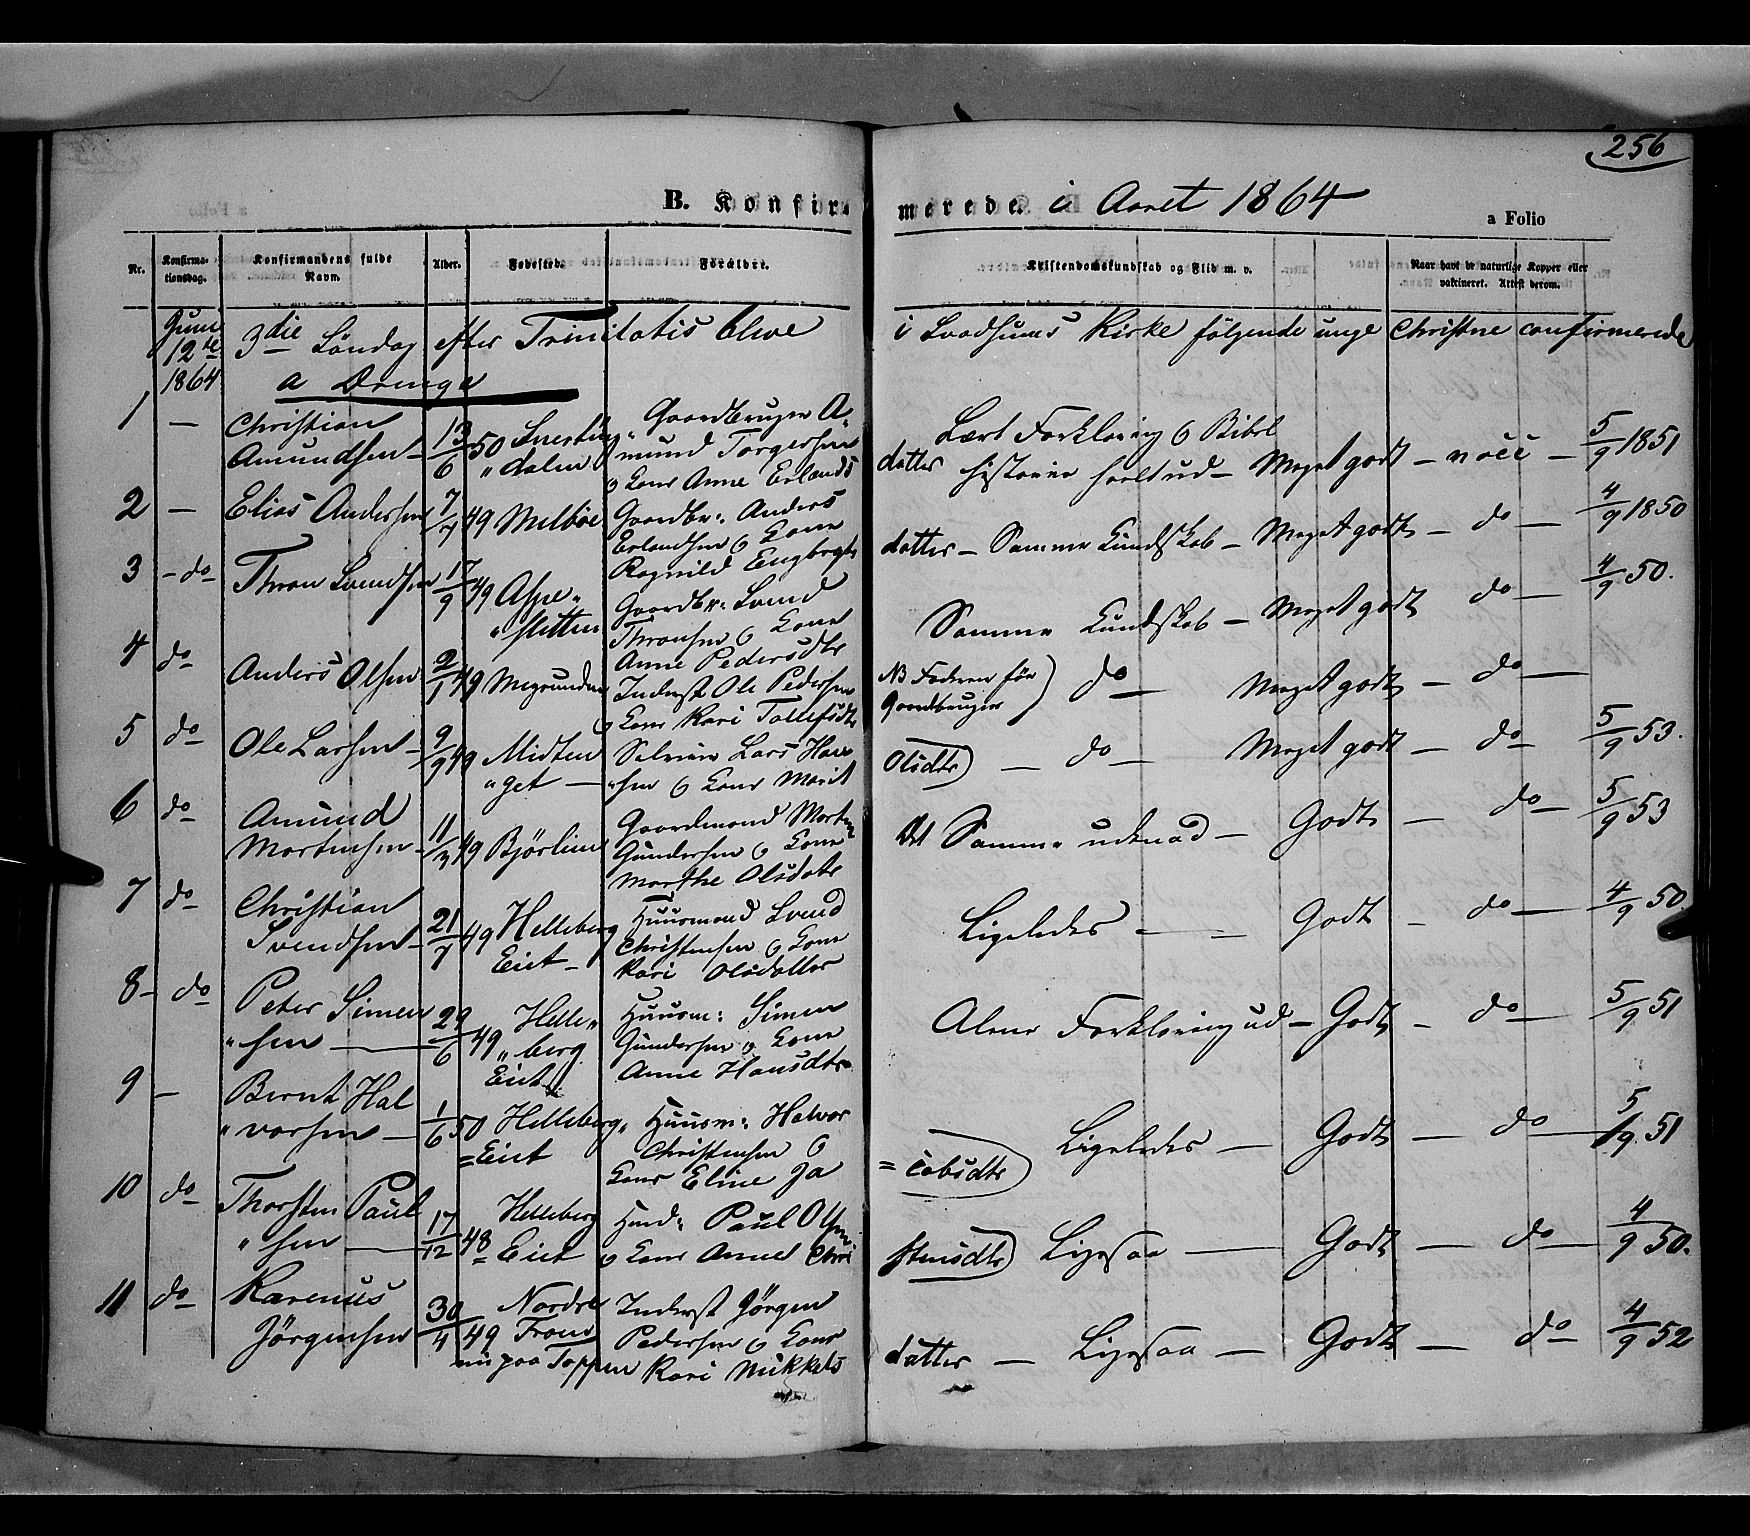 256
B. Konfirmerede i Aaret 1864
a Folio
Nr.
Konfirmationsdag.
Konfirmandens fulde Navn.
Alder.
Fødested.
Forældre.
Kristendomskundskab og Flid m. v.
Naar havt de naturlige Kopper eller vakcineret. Attest derom.
Juni 12te 1864
3die Søndag efter Trinitatis bleve i Kirke følgende unge Christne confirmerede
a Drenge
1 — Christian Amundsen 13/6 50 Gaardbruger Amund Torgersen o Kone Anne Erlandsdatter
Lært Forklaring o Bibelhistorie heelt ud — Meget godt — vacc — 5/9 1851
2 — Elias Andersen 7/7 49 Melbøe Gaardbr: Anders Erlandsen o Kone Ragnild Engbregtsdatter — Samme Kundskab — Meget godt — do — 4/9 1850
3 — do Thron Svendsen 17/9 49 Aspesletten Gaardbr: Svend Thronsen o Kone Anne Pedersdtr
Samme Kundskab — Meget godt do — 4/9 50.
4 do Anders Olsen 2/1 49 Inderst Ole Pedersen o Kone Kari Tollefsdtr
NB Faderen før Gaardbruger) do — Meget godt — do —
5 do Ole Larsen 9/9 49 Lars Hansen o Kone Marit Olsdtr) — do — Meget godt — do — 5/9 53.
6 do Amund Mortensen 11/3 49 Bjørlien Gaardmand Morten Gundersen o Kone Marthe Olsdatr
Samme — Godt — do — 5/9 53
7 do Christian Svendsen 21/7 49 Helleberg Eiet — Huusmand Svend Christensen o Kone Kari Olsdatter
Ligeledes — Godt — do — 4/9 50
8 — do Peter Simensen 29/6 49 Helleberg Eiet Huusm: Simen Gundersen o Kone Anne Hansdtr
Alene Forklaring ud — Godt — do — 5/9 51
9 — Bernt Halvorsen — 1/6 50 Helleberg Eiet Huusm: Halvor Christensen o Kone Eline Jacobsdtr) Ligeledes — Godt — do — 5/9 51
10 do Thorsten Paulsen 17/12 48 Helleberg Eiet Paul Olsen o Kone Anne Christensdtr) Ligesaa — Godt — do — 4/9 50.
11 do Karenus Jörgensen 30/4 49 Nordre paa Toppen Inderst Jörgen Pedersen o Kone Kari Mikkelsdatter — Ligesaa — Godt — do — 4/9 52